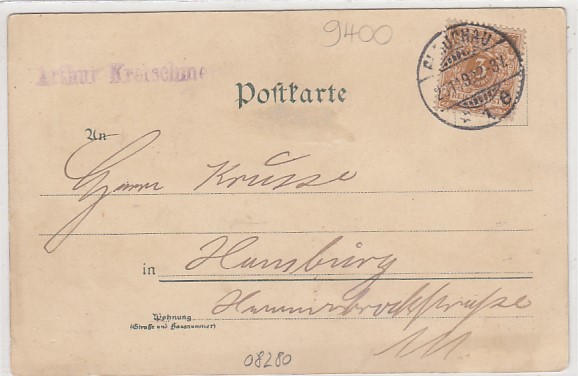 9400
GLAUCHAU
Arthur Kretschmer
Postkarte
An
Herrn Krusse
in Hamburg
Hammerbrookstrasse
Wohnung
(Straße und Hausnummer)
08280